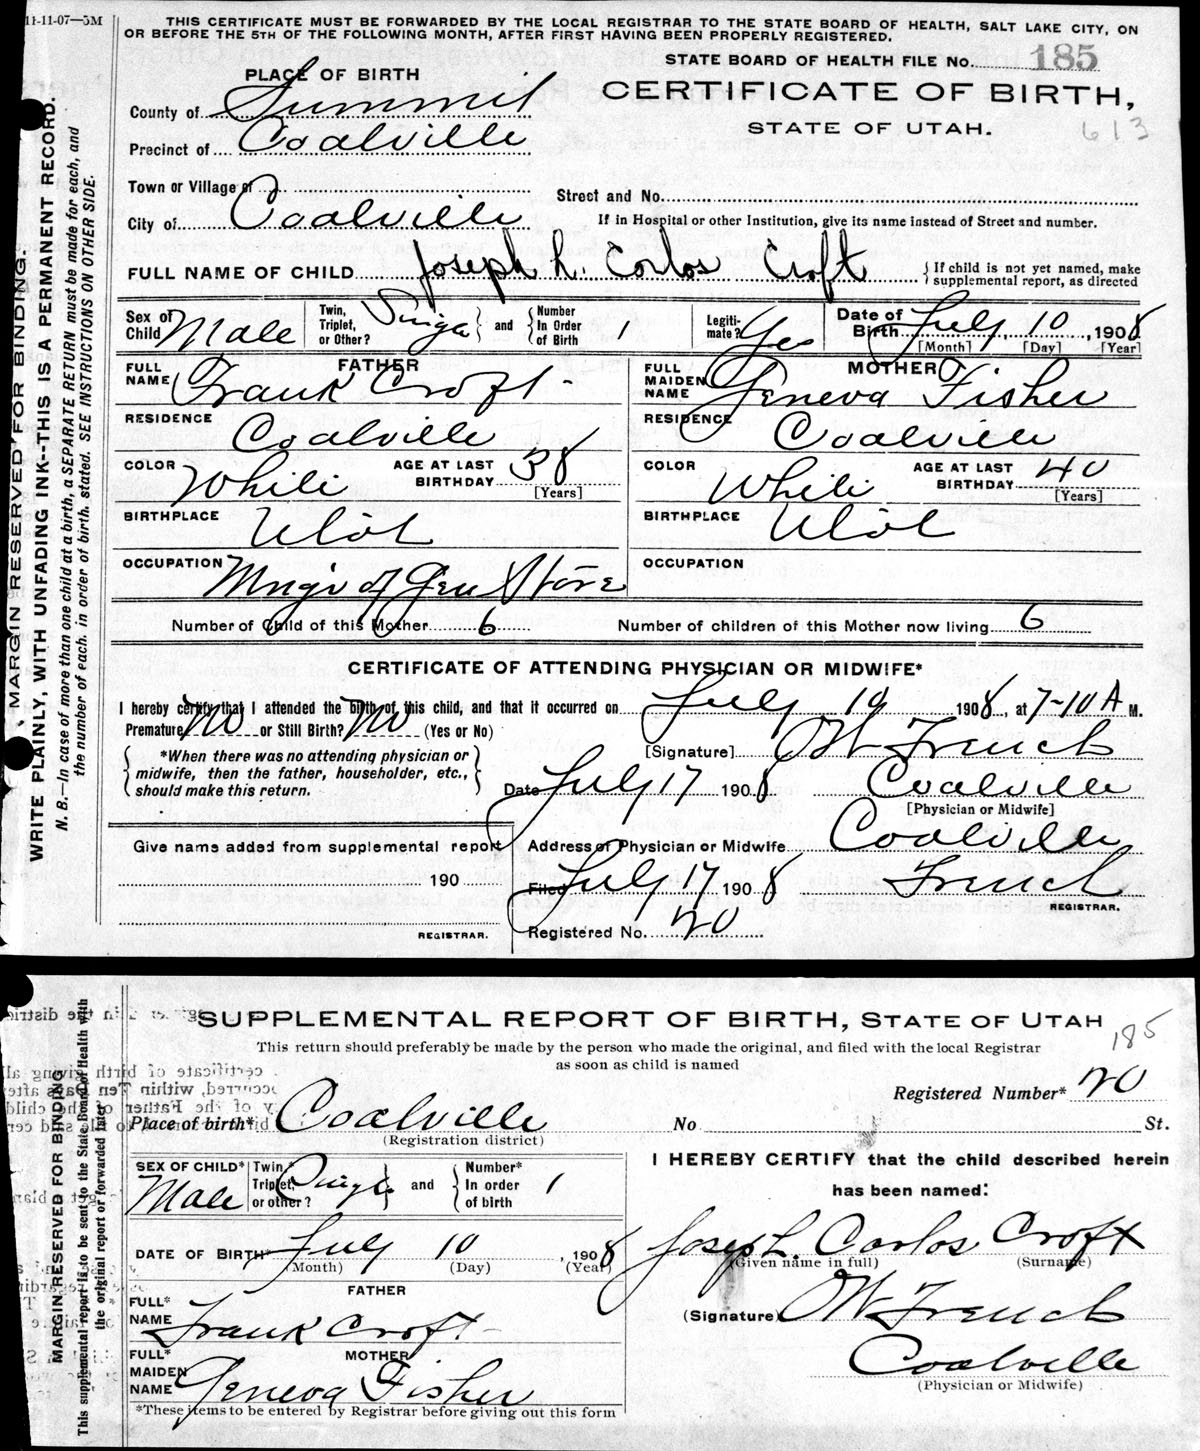 11-11-07—5M
THIS CERTIFICATE MUST BE FORWARDED BY THE LOCAL REGISTRAR TO THE STATE BOARD OF HEALTH, SALT LAKE CITY, ON
OR BEFORE THE 5TH OF THE FOLLOWING MONTH, AFTER FIRST HAVING BEEN PROPERLY REGISTERED.
MARGIN RESERVED FOR BINDING.
WRITE PLAINLY, WITH UNFADING INK--THIS IS A PERMANENT RECORD.
N. B.—In case of more than one child at a birth, a SEPARATE RETURN must be made for each, and
the number of each, in order of birth, stated. SEE INSTRUCTIONS ON OTHER SIDE.
STATE BOARD OF HEALTH FILE NO. 185
PLACE OF BIRTH
CERTIFICATE OF BIRTH,
County of Summit
STATE OF UTAH.
613
Precinct of Coalville
Town or Village of
Street and No.
City of Coalville
If in Hospital or other Institution, give its name instead of Street and number.
FULL NAME OF CHILD Joseph L. Carlos Croft
If child is not yet named, make
supplemental report, as directed
Sex of Child Male
Twin, Triplet, or Other? Single and
Number In Order of Birth 1
Legitimate? Yes
Date of Birth July 10, 1908
[Month] [Day] [Year]
FATHER
FULL NAME Frank Croft -
MOTHER
FULL MAIDEN NAME Geneva Fisher
RESIDENCE Coalville
RESIDENCE Coalville
COLOR White AGE AT LAST BIRTHDAY 38 [Years]
COLOR White AGE AT LAST BIRTHDAY 40 [Years]
BIRTHPLACE Utah
BIRTHPLACE Utah
OCCUPATION Mngr of Gen Store
OCCUPATION
Number of Child of this Mother 6
Number of children of this Mother now living 6
CERTIFICATE OF ATTENDING PHYSICIAN OR MIDWIFE*
I hereby certify that I attended the birth of this child, and that it occurred on July 10 1908, at 7-10 A M.
Premature No or Still Birth? No (Yes or No)
[Signature] OW French
*When there was no attending physician or
midwife, then the father, householder, etc.,
should make this return.
Date July 17 1908 Coalville
[Physician or Midwife]
Give name added from supplemental report
Address of Physician or Midwife Coalville
190
Filed July 17 1908 French
REGISTRAR.
REGISTRAR.
Registered No. 20
MARGIN RESERVED FOR BINDING
This supplemental report is to be sent to the State Board of Health with
the original report or forwarded later
SUPPLEMENTAL REPORT OF BIRTH, STATE OF UTAH
185
This return should preferably be made by the person who made the original, and filed with the local Registrar
as soon as child is named
Registered Number* 20
Place of birth* Coalville
(Registration district)
No St.
SEX OF CHILD* Male
Twin,* Triplet, or other? Single and
Number* In order of birth 1
I HEREBY CERTIFY that the child described herein
has been named:
DATE OF BIRTH* July 10, 1908
(Month) (Day) (Year)
Joseph L. Carlos Croft
(Given name in full) (Surname)
FATHER
FULL* NAME Frank Croft -
(Signature) OW French
MOTHER
FULL* MAIDEN NAME Geneva Fisher
Coalville
(Physician or Midwife)
*These items to be entered by Registrar before giving out this form